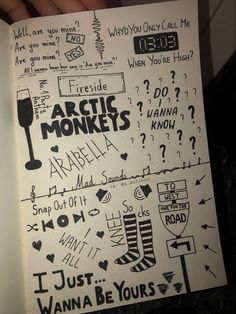 Well, are you mine?
Are you mine? NO!
Are you mine? YES!
All I wanna hear her say is "Are you mine?"
WHY'D YOU ONLY CALL ME
03:03
WHEN YOU'RE HIGH?
No. 1 Party
Anthem
Fireside
ARCTIC
MONKEYS
DO
I
WANNA
KNOW
? ? ? ? ? ? ? ? ? ? ? ? ? ?
ARABELLA
Mad Sounds
Snap Out Of It
I
WANT IT
ALL
KNEE
So cks
TO
WEST
ONE FOR THE
ROAD
I JUST...
WANNA BE YOURS